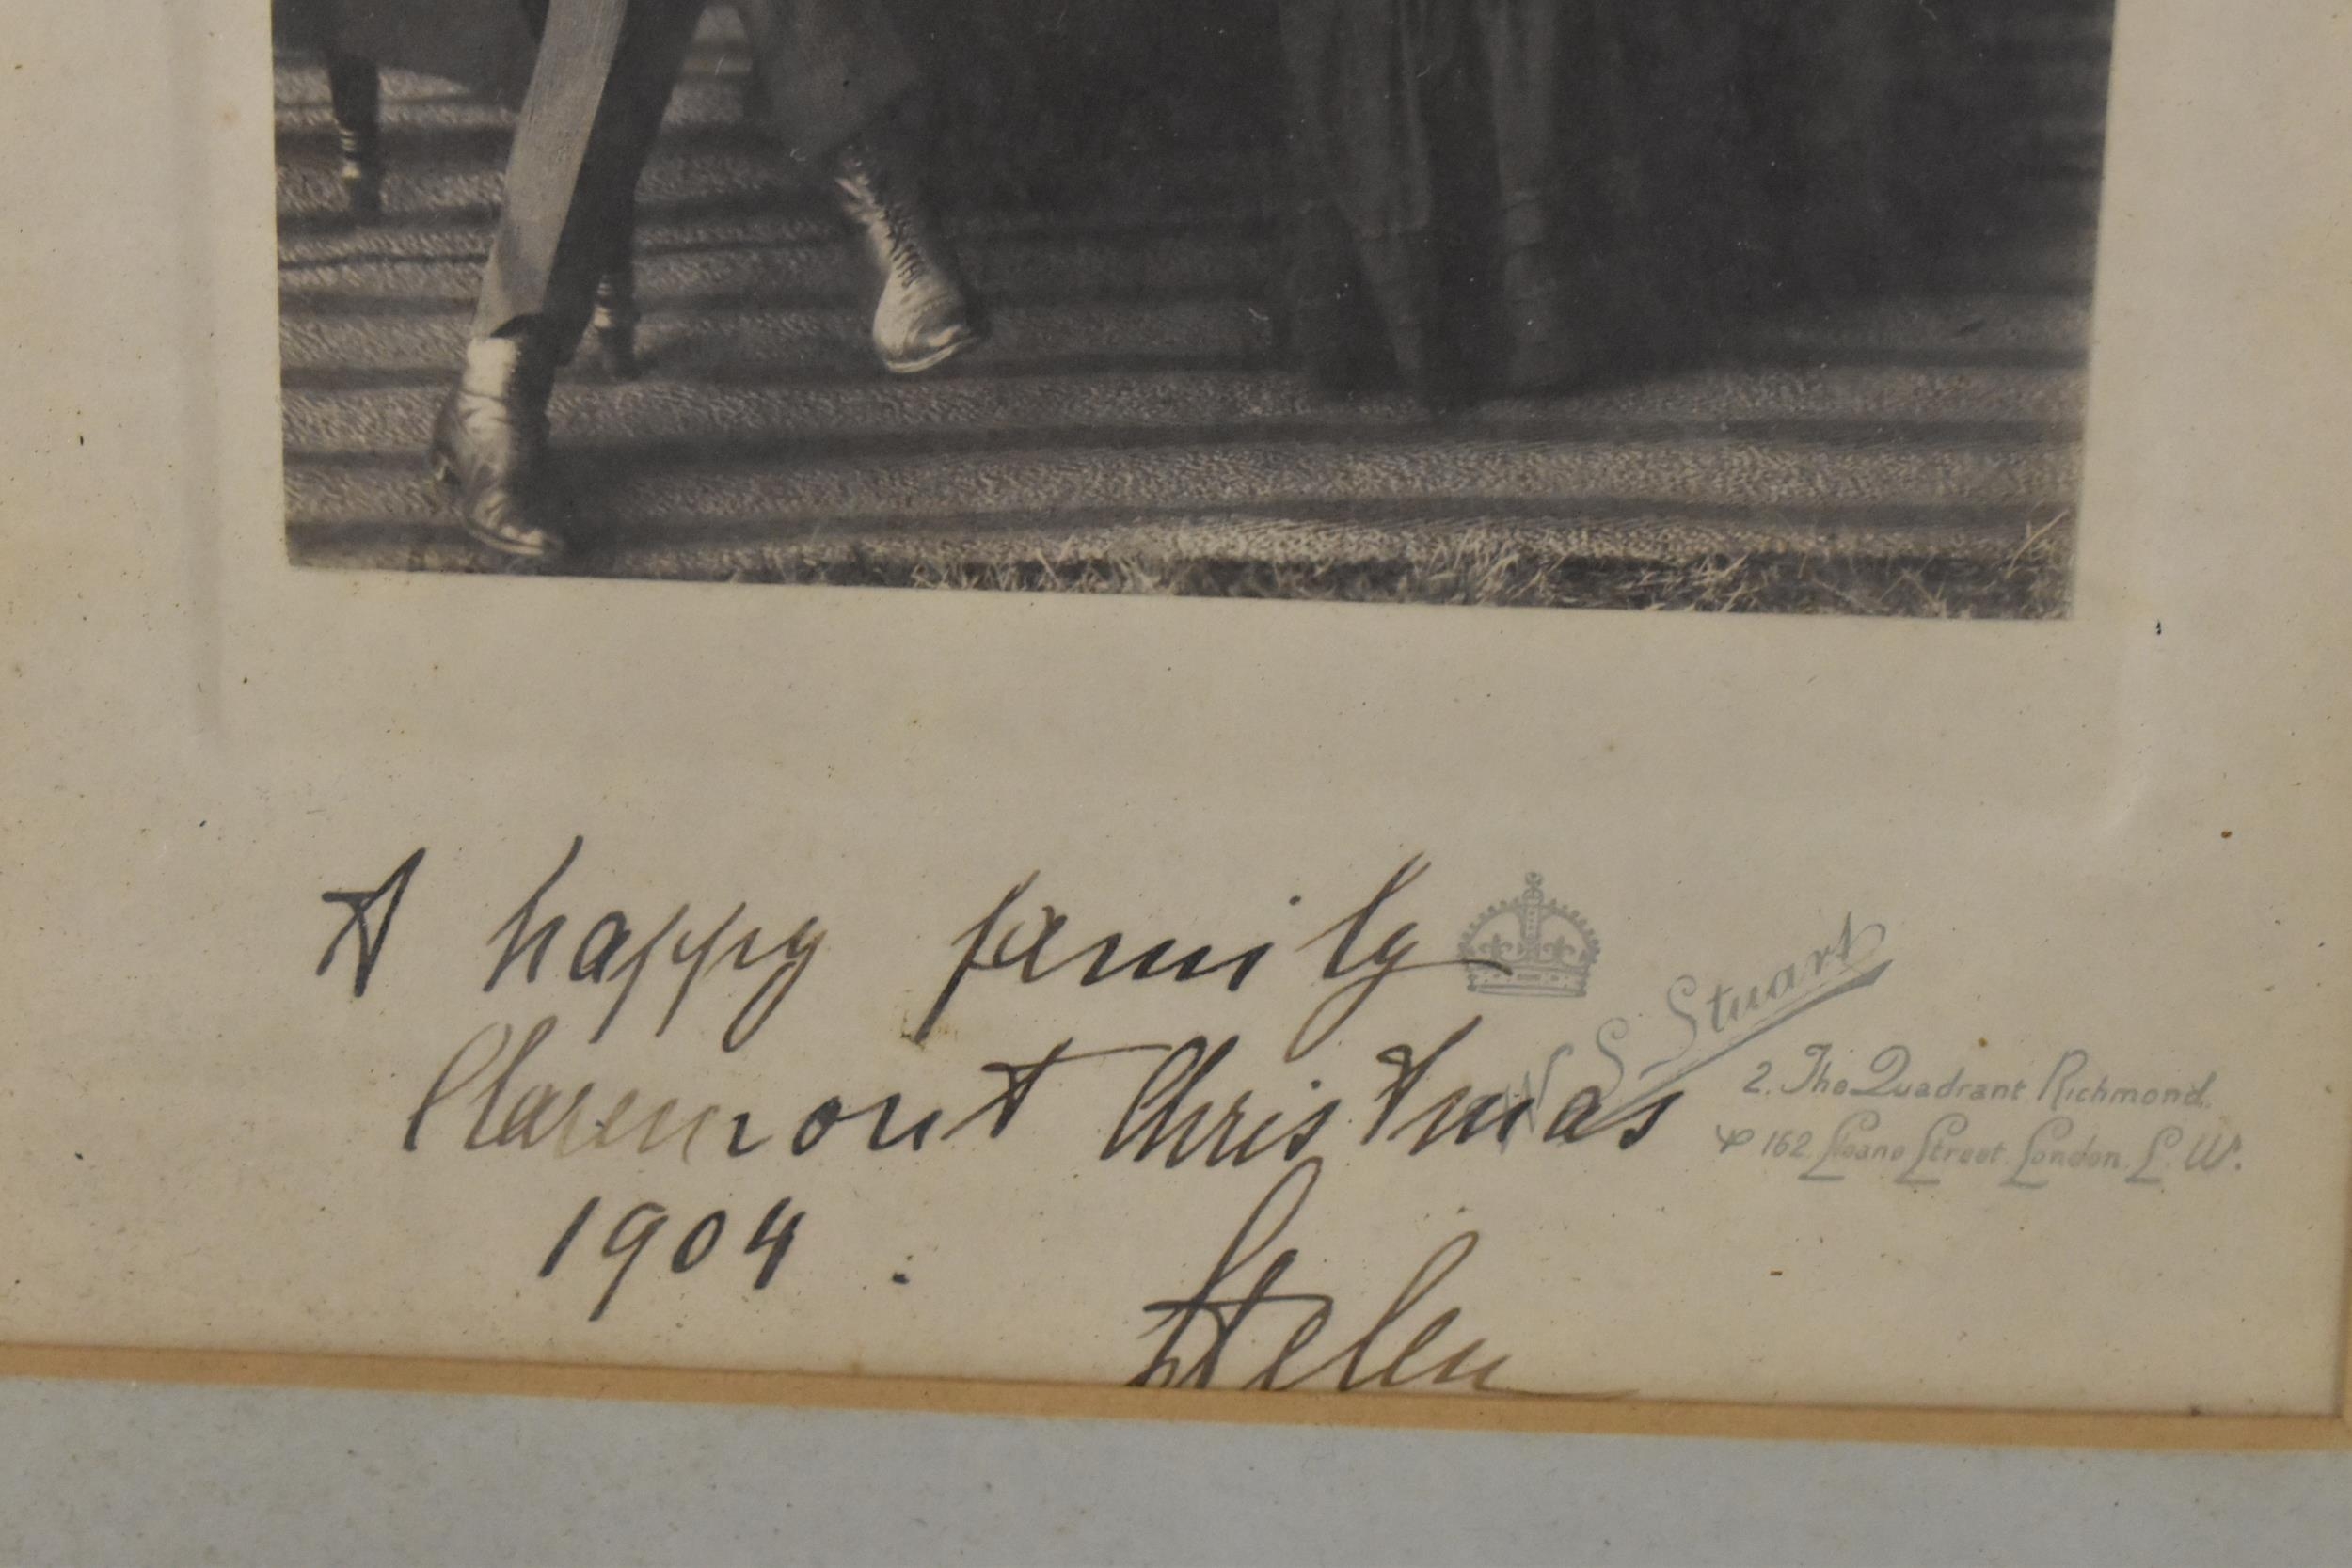 A happy family
Claremont Christmas
1904.
Helen
W S Stuart
2. The Quadrant Richmond.
& 162 Sloane Street. London. S. W.